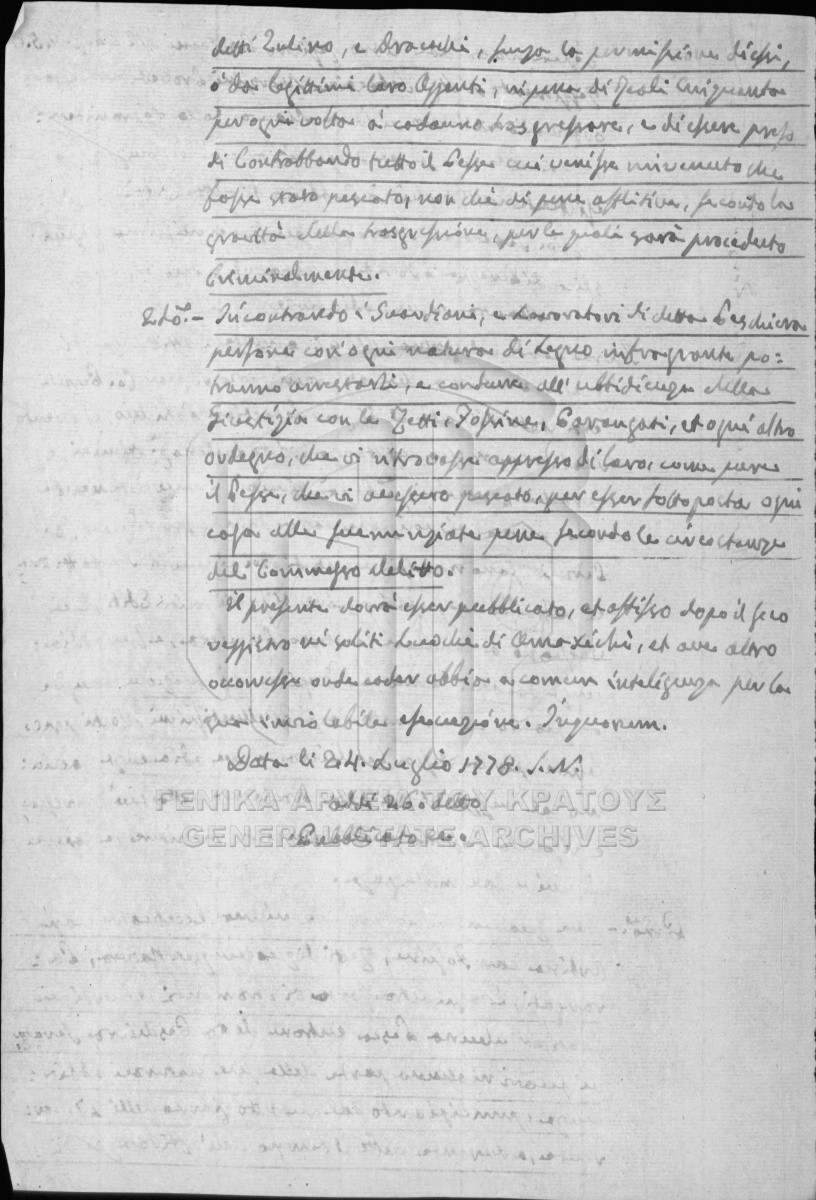 detti Zulino, e Dracachi, senza la permissione di essi,
ò da legittimi loro Aggenti, in pena di Reali Cinquanta
per ogni volta à cadaun trasgressore, e di esser preso
di Contrabbando tutto il Pesce cui venisse rinvenuto che
fosse stato pescato, non che di pene afflitive, secondo la
gravità della trasgressione, per le quali sarà proceduto
Criminalmente.
2do.- Incontrando i Guardiani, e Lavoratori di detta Peschiera
persone con ogni natura di Legno, in fragrante po=
tranno arrestarli, e condurre all' ubbidienza della
Giustizia con le Retti, Fossine, Parangati, et ogni altro
ordegno, che vi ritrovasse appresso di loro, come pure
il Pesce, che vi avessero pescato, per esser sottoposta ogni
cosa alle summenziate pene secondo le circostanze
del Commesso delitto.
Il presente dovrà esser pubblicato, et affisso dopo il suo
reggistro nè soliti Luochi di Amaxichi, et ove altro
occoresse onde cader abbia a comun inteligenza per la
sua inviolabile esecuzione. In quorum.
Data li 24. Luglio 1778. S. N.
adi 26. detto
Pubblicato
ΓΕΝΙΚΑ ΑΡΧΕΙΑ ΤΟΥ ΚΡΑΤΟΥΣ
GENERAL STATE ARCHIVES